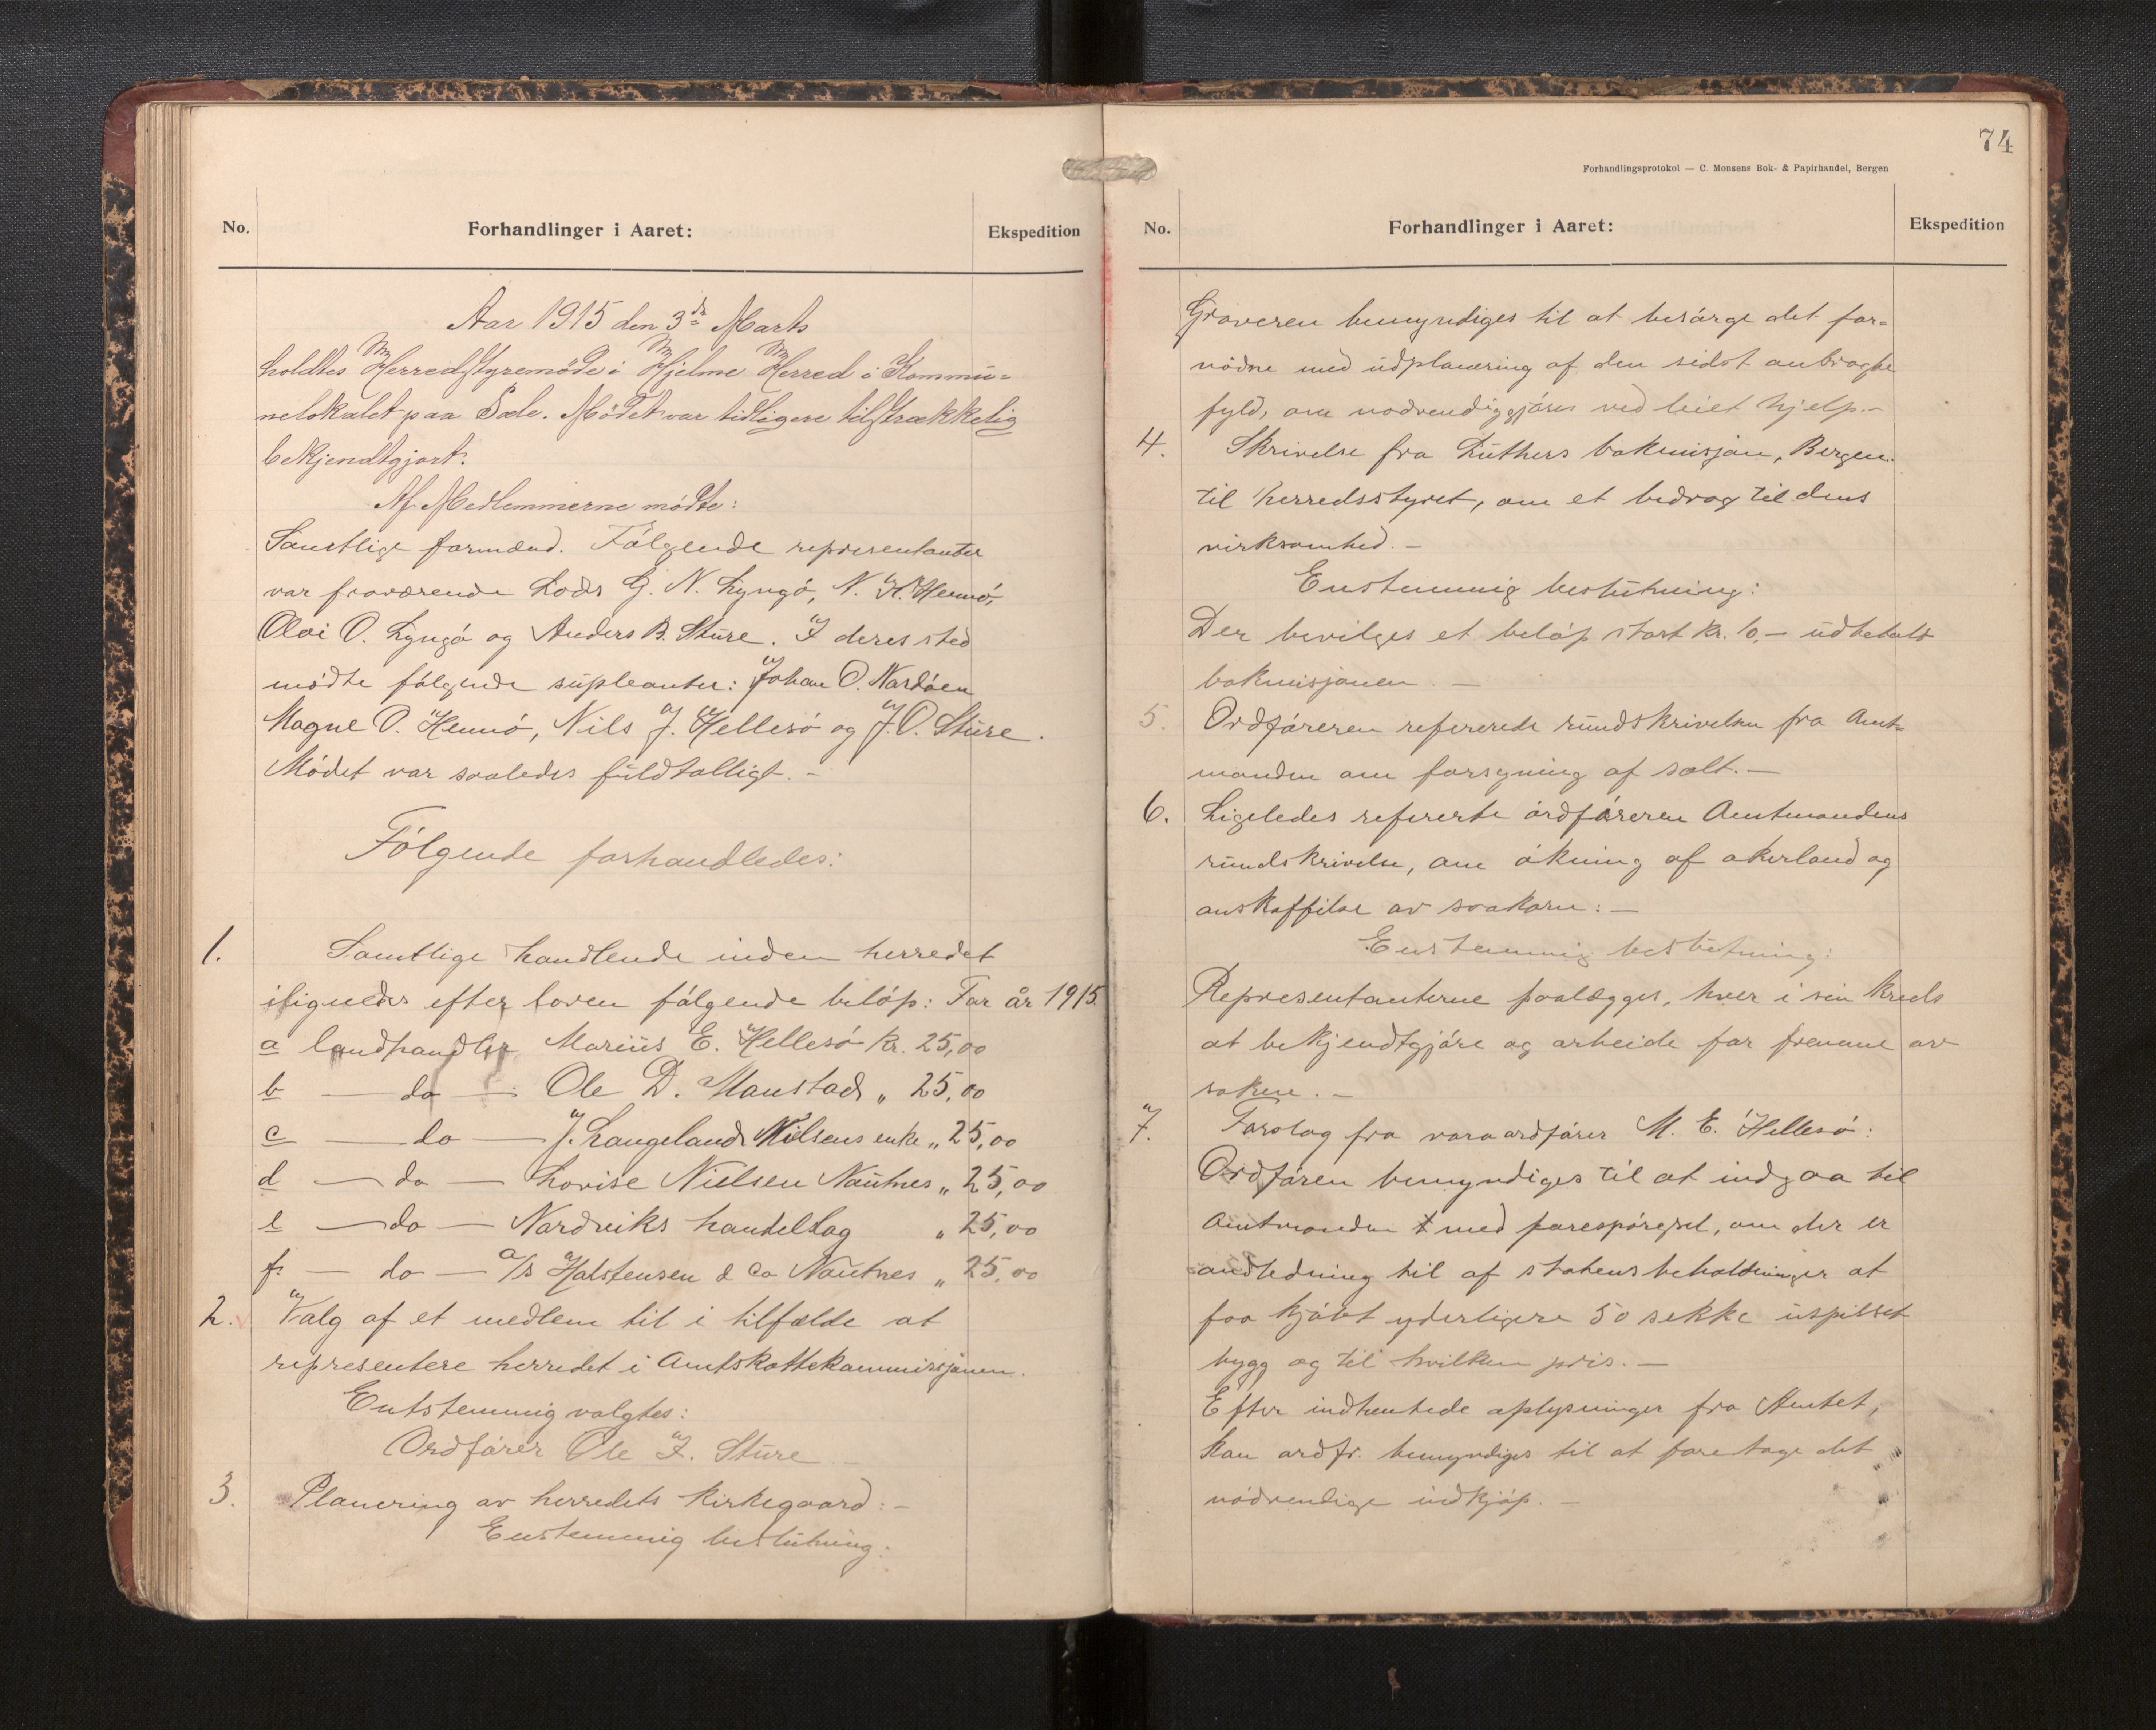 No.
Forhandlinger i Aaret:
Ekspedition
Aar 1915 den 3de Marts
holdtes Herredstyremøde i Hjelme Herred i Kommu-
nelokalet paa Sæle. Mødet var tidligere tilstrækkelig
bekjendtgjort.
Af Medlemmerne mødte:
Samtlige formænd. Følgende representanter
var fraværende Lods G. N. Lyngø, N. H. Hernø,
Olai O. Lyngø og Anders B. Sture. I deres sted
mødte følgende supleanter: Johan O. Nordøen
Magne O. Hernø, Nils J. Hellesø og J. O. Sture.
Mødet var saaledes fuldtalligt. -
Følgende forhandledes:
1. Samtlige handlende inden herredet
ilignedes efter loven følgende beløp: For år 1915.
a landhandler Marius E. Hellesø kr. 25,00
b — do — Ole D. Manstad „ 25,00
c — do — J. Langeland Nilsens enke „ 25,00
d — do — Lovise Nielsen Nautnes „ 25,00
e — do — Nordviks handelslag „ 25,00
f. — do — A/s Halstensen & Co Nautnes „ 25,00
2. Valg af et medlem til i tilfælde at
representere herredet i Amtskattekommissjonen.
Entstemmig valgtes:
Ordfører Ole I. Sture
3. Planering av herredets kirkegaard: -
Enstemmig beslutning:
74
Forhandlingsprotokol — C. Monsens Bok- & Papirhandel, Bergen
No.
Forhandlinger i Aaret:
Ekspedition
Graveren bemyndiges til at besørge det for-
nødne med udplanering af den sidst anbragte
fyld, om nødvendiggjøres ved leiet hjelp. -
4. Skrivelse fra Luthers bokmisjon, Bergen.
til herredsstyret, om et bidrag til dens
virksomhed. -
Enstemmig beslutning:
Der bevilges et beløp stort kr. 10,- udbetalt
bokmisjonen. —
5. Ordføreren refererede rundskrivelse fra Amt-
manden om forsyning af salt. —
6. Ligeledes refererte ordføreren Amtmandens
rundskrivelse, om økning af akerland og
anskaffelse av saakorn: —
Enstemmig beslutning:
Representanterne paalægges, hver i sin kreds
at bekjendtgjøre og arbeide for fremme av
saken. —
7. Forslag fra varaordfører M. E. Hellesø:
Ordføren bemyndiges til at indgaa til
Amtmanden med forespørgsel, om der er
andledning til af statens beholdninger at
faa kjøbt yderligere 50 sekke uspilset
bygg og til hvilken pris. —
Efter indhentede oplysninger fra Amtet,
kan ordfr. bemyndiges til at foretage det
nødvendige indkjøp. —